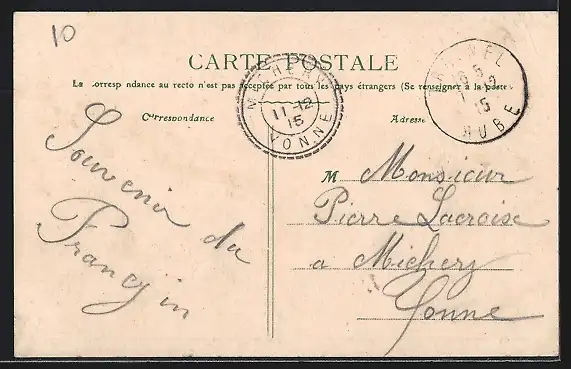 10
CARTE POSTALE
La correspondance au recto n'est pas acceptée par tous les pays étrangers (Se renseigner à la poste
MICHERY
11-12
15
YONNE
AUBE
Correspondance
Adresse
Souvenir du
Frangin
M Monsieur
Pierre Lacroise
a Michery
Yonne